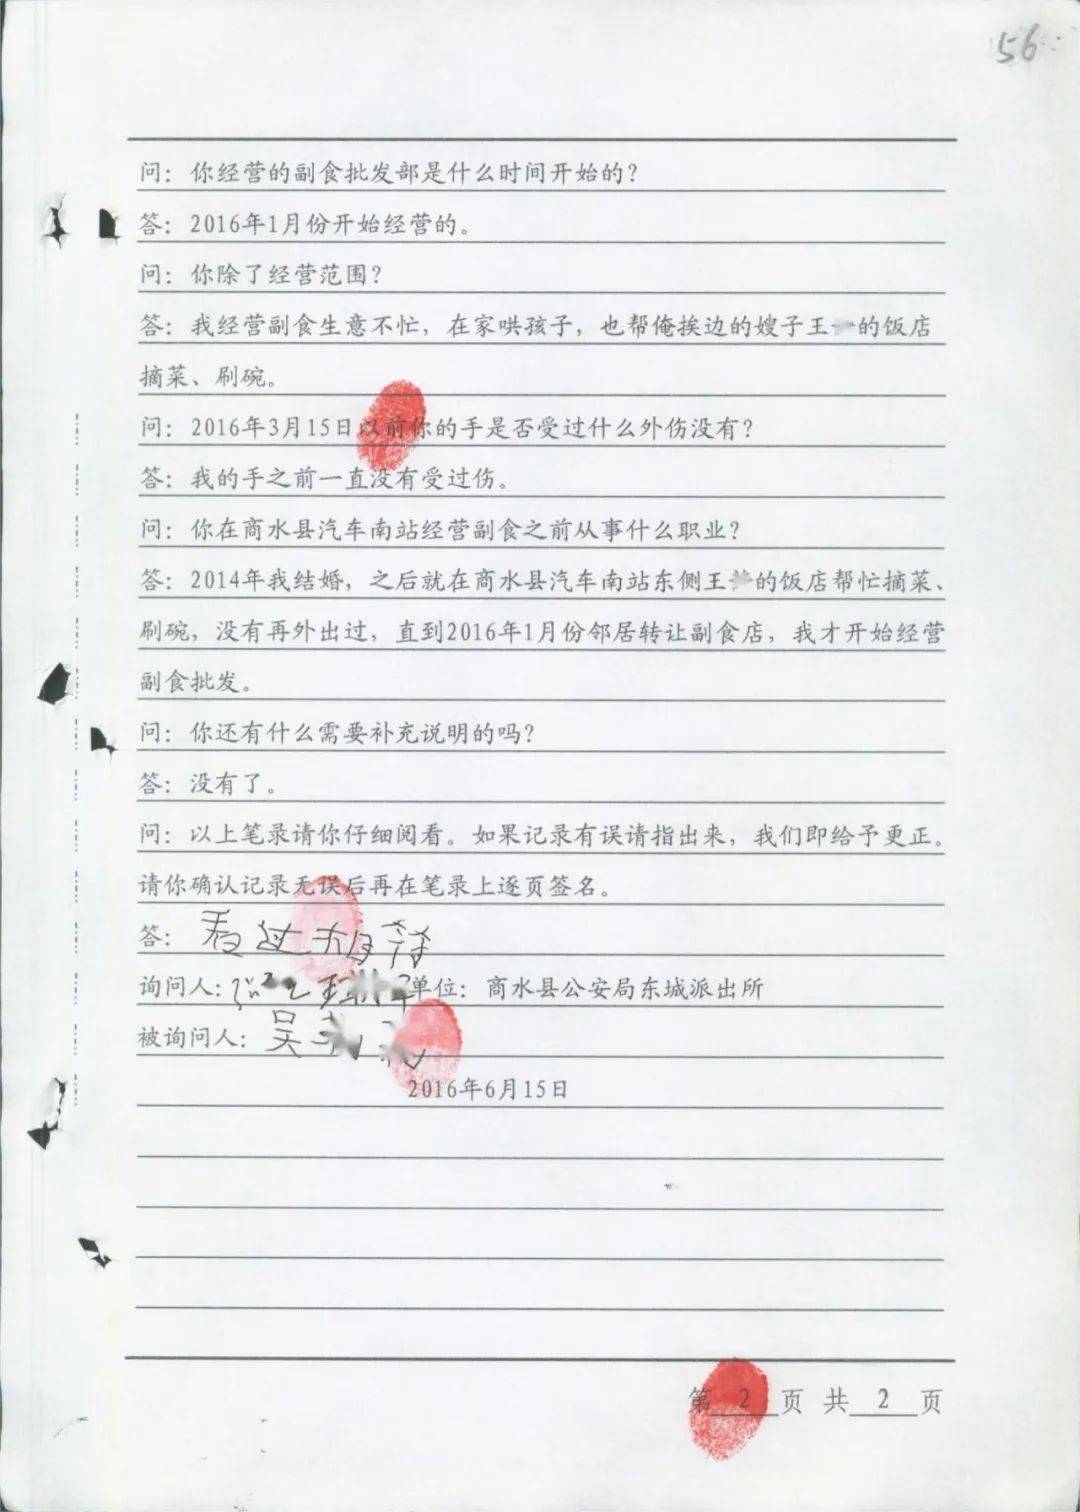 56
问：你经营的副食批发部是什么时间开始的？
答：2016年1月份开始经营的。
问：你除了经营范围？
答：我经营副食生意不忙，在家哄孩子，也帮俺挨边的嫂子王 的饭店
摘菜、刷碗。
问：2016年3月15日以前你的手是否受过什么外伤没有？
答：我的手之前一直没有受过伤。
问：你在商水县汽车南站经营副食之前从事什么职业？
答：2014年我结婚，之后就在商水县汽车南站东侧王 的饭店帮忙摘菜、
刷碗，没有再外出过，直到2016年1月份邻居转让副食店，我才开始经营
副食批发。
问：你还有什么需要补充说明的吗？
答：没有了。
问：以上笔录请你仔细阅看。如果记录有误请指出来，我们即给予更正。
请你确认记录无误后再在笔录上逐页签名。
答：看过
询问人： 单位：商水县公安局东城派出所
被询问人：吴
2016年6月15日
第 2 页 共 2 页